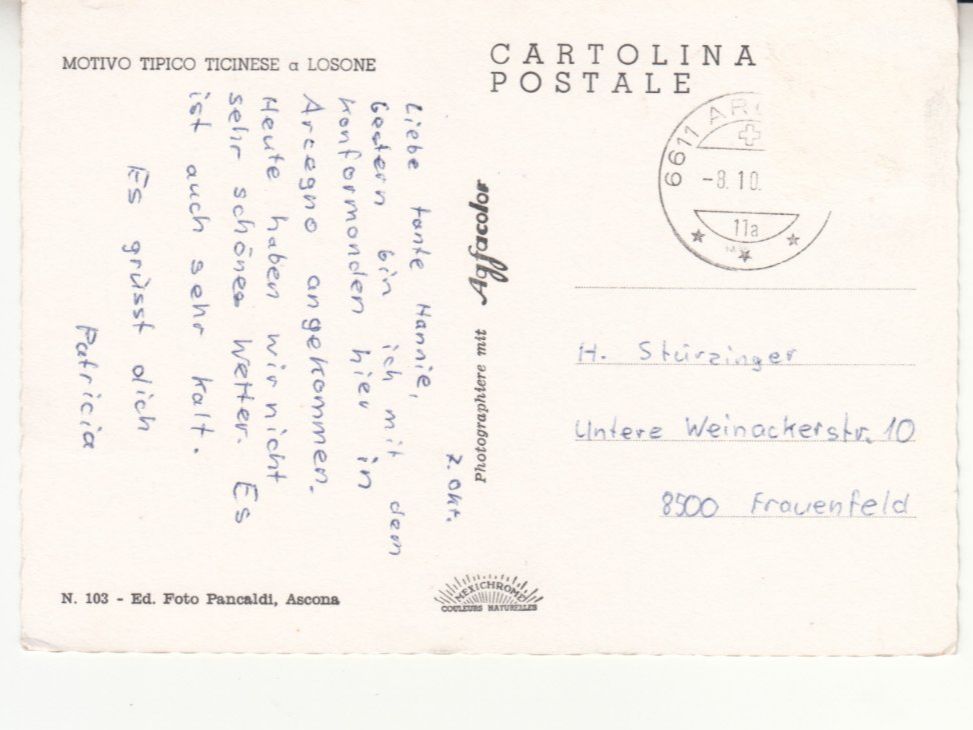 MOTIVO TIPICO TICINESE a LOSONE
CARTOLINA
POSTALE
6611
-8.10.
11a
7. Okt.
Liebe tante Hannie,
Gestern bin ich mit dem
Konformanden hier in
Arcegno angekommen.
Heute haben wir nicht
sehr schönes Wetter. Es
ist auch sehr kalt.
Es grüsst dich
Patricia
Photographiere mit Agfacolor
H. Stürzinger
Untere Weinackerstr. 10
8500 Frauenfeld
N. 103 - Ed. Foto Pancaldi, Ascona
MEXICHROME
COULEURS NATURELLES